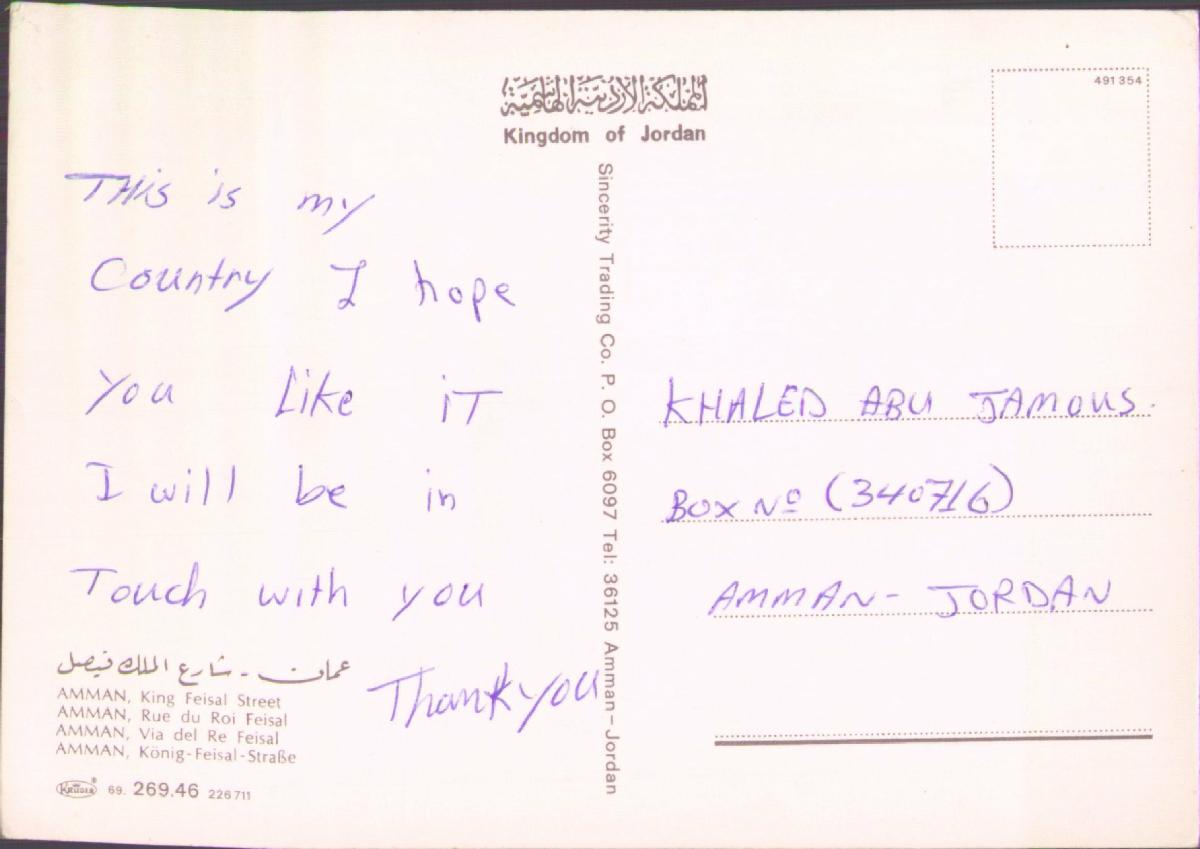 المملكة الأردنية الهاشمية
Kingdom of Jordan
491354
THis is my
Country I hope
you Like iT
I will be in
Touch with you
Thank you
عمان - شارع الملك فيصل
AMMAN, King Feisal Street
AMMAN, Rue du Roi Feisal
AMMAN, Via del Re Feisal
AMMAN, König-Feisal-Straße
KRÜGER® 69. 269.46 226711
Sincerity Trading Co. P. O. Box 6097 Tel: 36125 Amman-Jordan
KHALED ABU JAMOUS.
BOX Nº (340716)
AMMAN- JORDAN